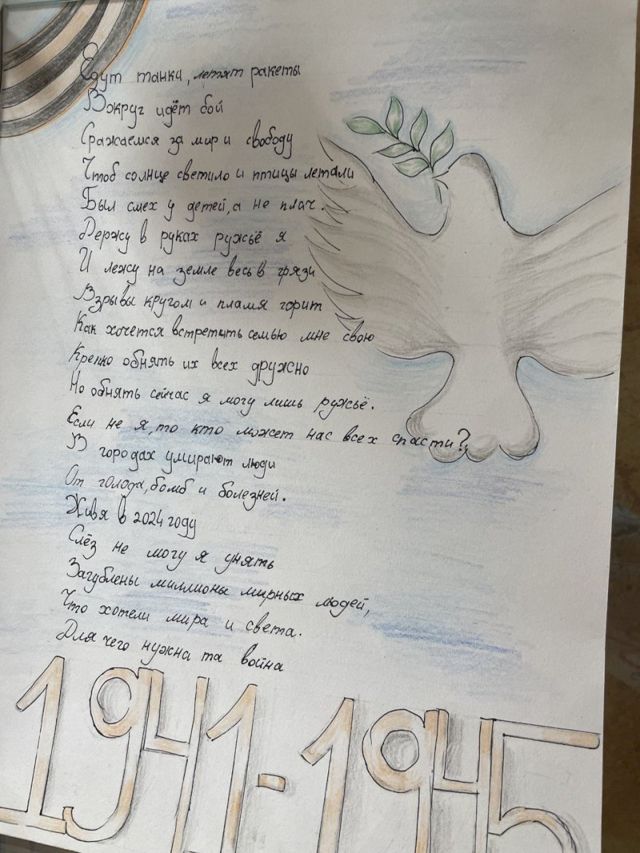 Едут танки, летят ракеты
Вокруг идёт бой
Сражаемся за мир и свободу
Чтоб солнце светило и птицы летали
Был смех у детей, а не плач.
Держу в руках ружьё я
И лежу на земле весь в грязи
Взрывы кругом и пламя горит
Как хочется встретить семью мне свою
Крепко обнять их всех дружно
Но обнять сейчас я могу лишь ружьё.
Если не я, то кто может нас всех спасти?
В городах умирают люди
От голода, бомб и болезней.
Живя в 2024 году
Слёз не могу я унять
Загублены миллионы мирных людей,
Что хотели мира и света.
Для чего нужна та война
1941-1945